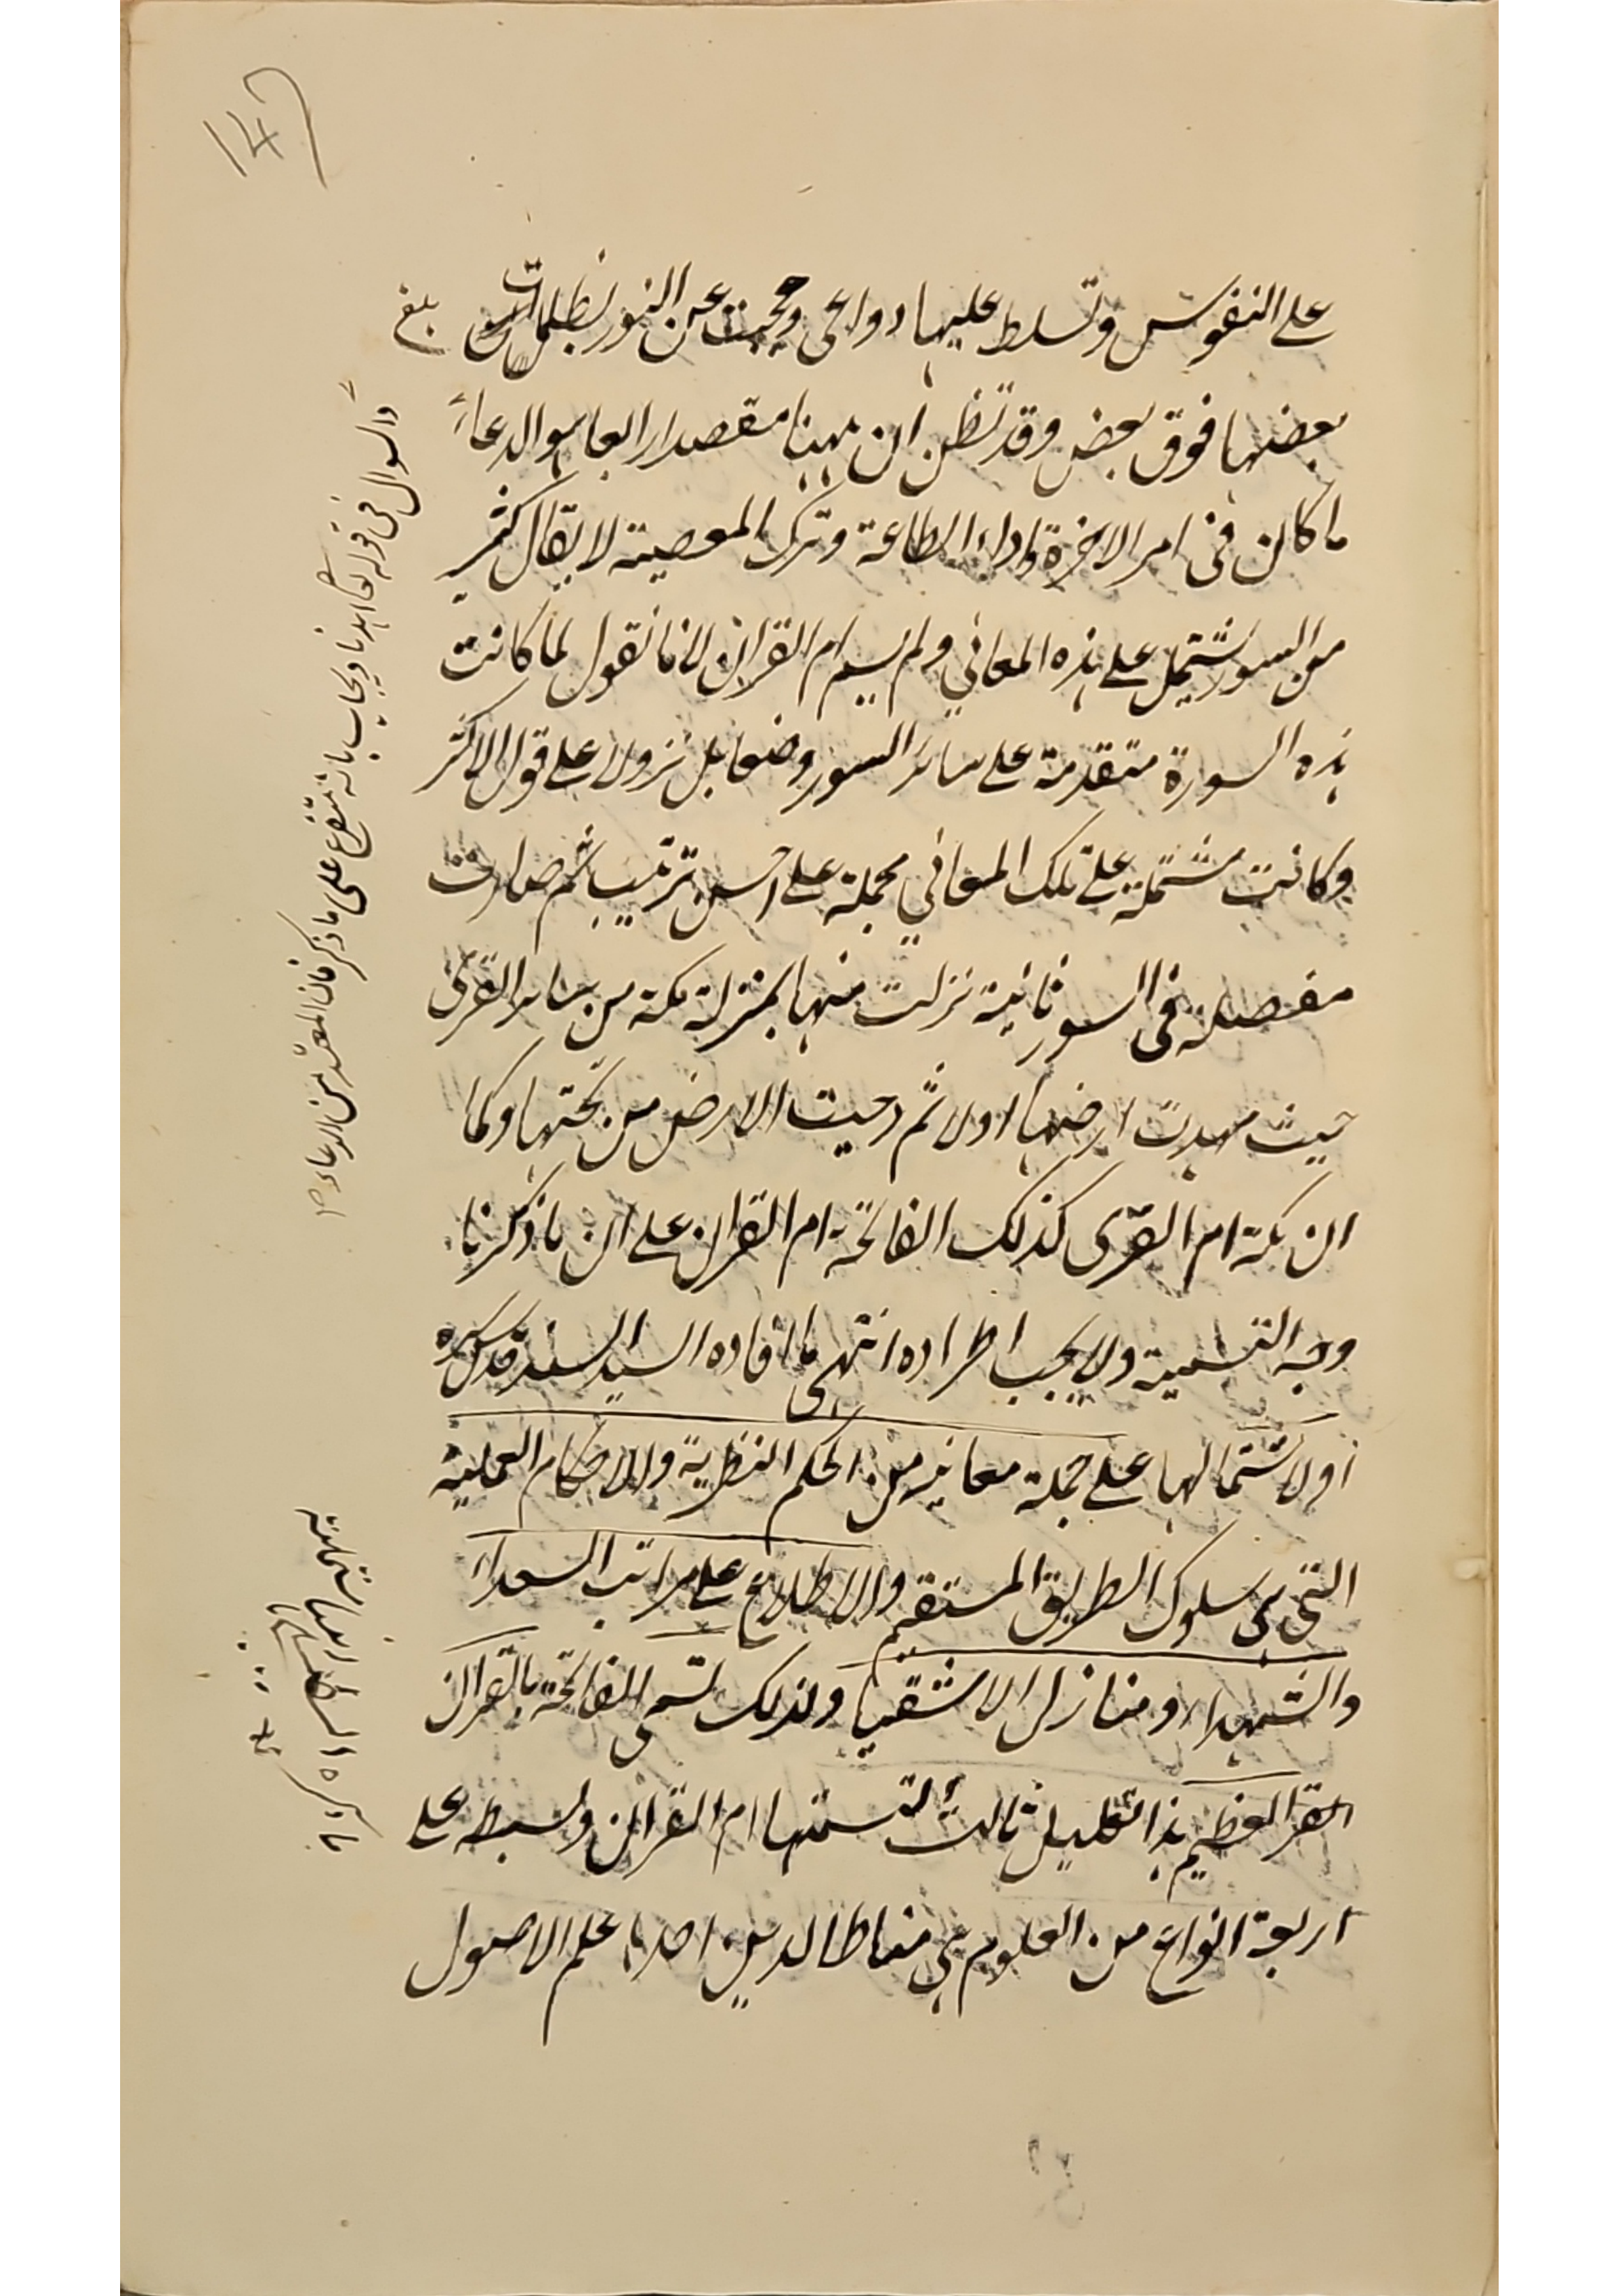 على النفوس وتسلط عليها دواعى وحجبت عن النور بظلمات
بعضها فوق بعض وقد تظن ان ههنا مقصدا رابعا هو الدعاء
ما كان فى امر الاخرة واداء الطاعة وترك المعصية لا يقال كثير
من السور تشتمل على هذه المعاني ولم يسم ام القران لانا نقول لما كانت
هذه السورة متقدمة على سائر السور وضعا بل نزولا على قول الاكثر
وكانت مشتملة على تلك المعاني مجملة على احسن ترتيب ثم صارت
مفصلة فى السور ثانية نزلت منها بمنزلة مكة من سائر القرى
حيث مهدت ارضها اولا ثم دحيت الارض من تحتها وكما
ان مكة ام القرى كذلك الفاتحة ام القران على ان ما ذكرنا
وجه التسمية ولا يجب اطراده انتهى ما افاده السيد السند قدس سره
او لاشتمالها على جملة معانيه من الحكم النظرية والاحكام العملية
التى هى سلوك الطريق المستقيم والاطلاع على مراتب السعداء
والشهداء ومنازل الاشقيا ولذلك تسمى الفاتحة بالقران
العظيم هذا تعليل ثالث لتسميتها ام القران وبسطه على
اربعة انواع من العلوم هى مناط الدين احدها علم الاصول
بلغ
والسوال فى قوله تعالى اهدنا ويجاب بانه متفرع على ما ذكر فان المقصد من الدعاء